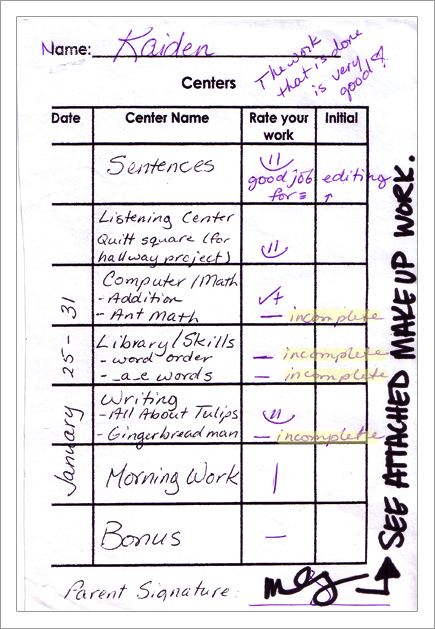 Name: Kaiden
The work
that is done
is very
good!
Centers
Date Center Name Rate your work Initial
January 25 - 31
Sentences
good job editing
for
Listening Center
Quilt square (for
hallway project)
Computer/Math
- Addition ✓+
- Ant Math — incomplete
Library/Skills
- word order — incomplete
- _a_e words — incomplete
Writing
- All About Tulips
- Gingerbread man — incomplete
Morning Work |
Bonus —
Parent Signature:
SEE ATTACHED MAKEUP WORK.